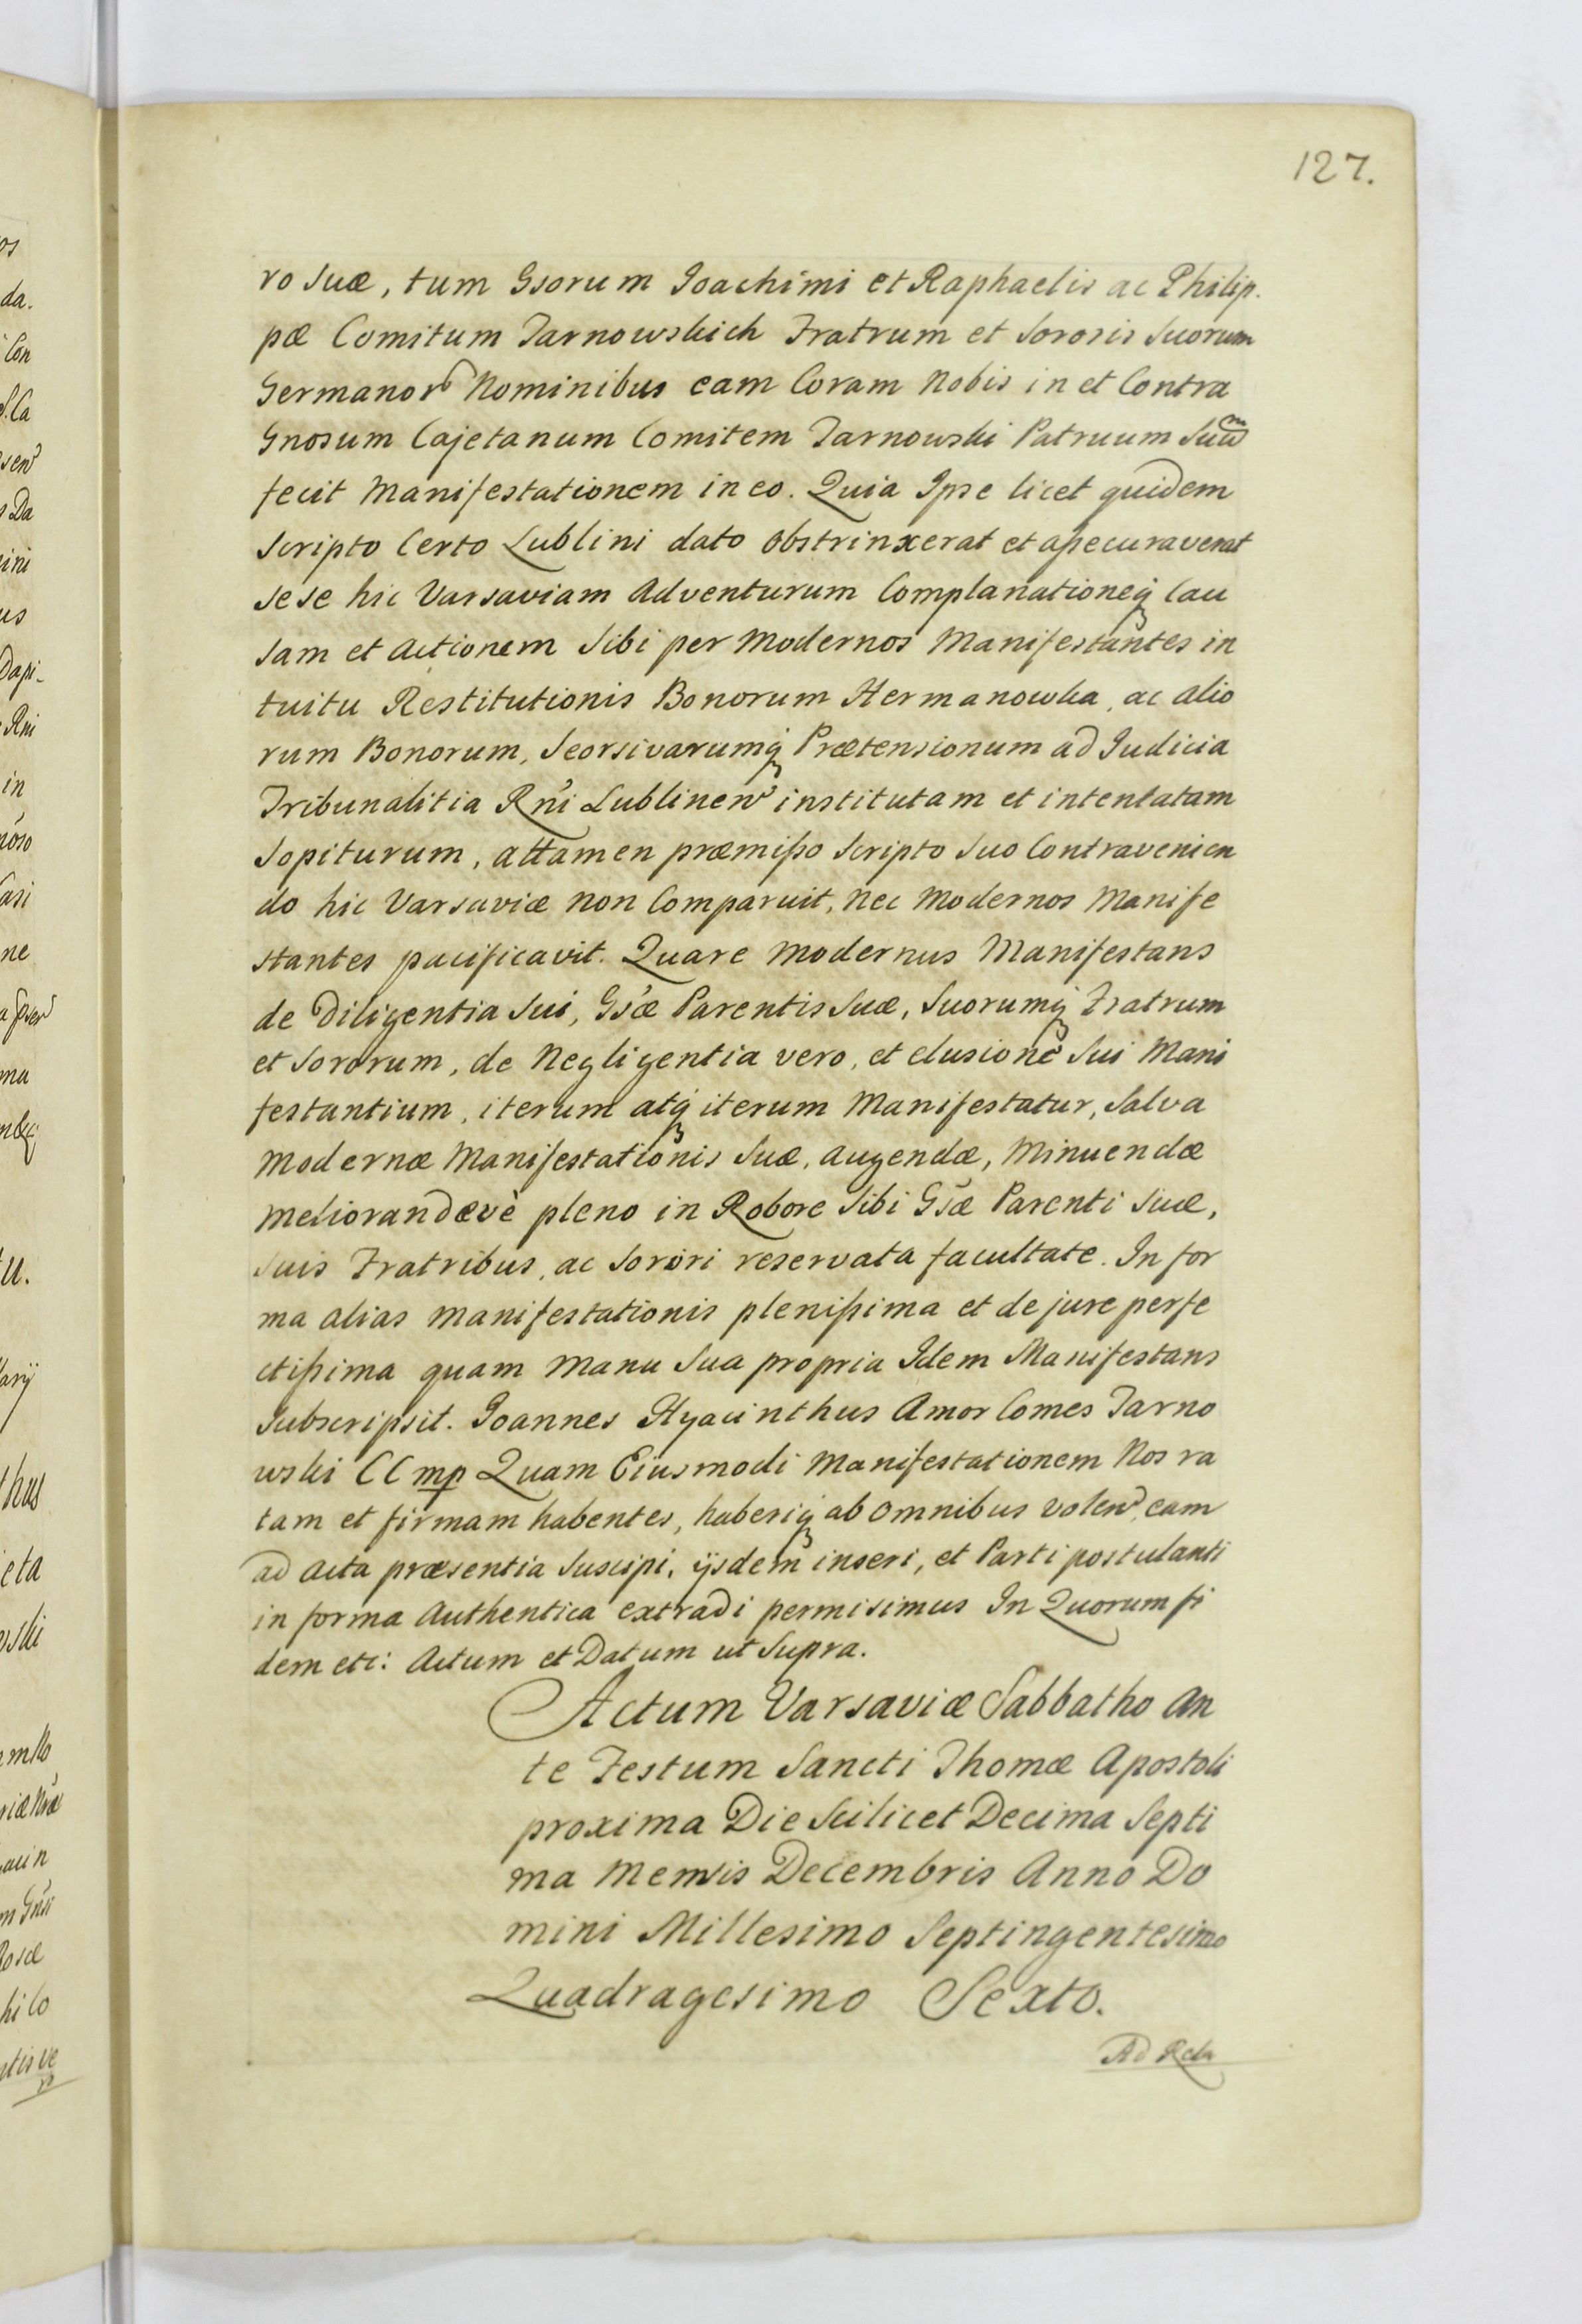 127.
ro suæ, tum Gsorum Joachimi et Raphaelis ac Philip-
pæ Comitum Tarnowskich Fratrum et Sororis Suorum
Germanor Nominibus eam Coram Nobis in et Contra
Gnosum Cajetanum Comitem Tarnowski Patruum Suum
fecit Manifestationem in eo. Quia Ipse licet quidem
Scripto Certo Lublini dato obstrinxerat et aßecuraverat
sese hic Varsaviam Adventurum Complanationeq Cau
sam et Actionem Sibi per Modernos Manifestantes in
tuitu Restitutionis Bonorum Hermanowka, ac alio
rum Bonorum, Seorsivarumq Prætensionum ad Judicia
Tribunalitia Rni Lublinen institutam et intentatam
Sopiturum, attamen præmißo Scripto Suo Contravenien
do hic Varsaviæ non Comparuit, nec Modernos Manife
stantes pacificavit. Quare Modernus Manifestans
de Diligentia Sui, Gsæ Parentis Suæ, Suorumq Fratrum
et Sororum, de Negligentia vero, et elusione Sui Mani
festantium, iterum atq iterum Manifestatur, Salva
Modernæ Manifestationis Suæ, augendæ, Minuendæ
Meliorandævè pleno in Robore Sibi Gsæ Parenti Suæ,
Suis Fratribus, ac Sorori reservata facultate. In for
ma alias Manifestationis plenißima et de jure perfe
ctißima quam Manu Sua propria Idem Manifestans
Subscripsit. Joannes Hyacinthus Amor Comes Tarno
wski CC mp Quam Eiusmodi Manifestationem Nos ra
tam et firmam habentes, haberiq ab omnibus volen, eam
ad Acta præsentia Suscipi, ijsdem inseri, et Parti postulanti
in forma Authentica extradi permisimus In Quorum fi
dem etc: Actum et Datum ut Supra.
Actum Varsaviæ Sabbatho An
te Festum Sancti Thomæ Apostoli
proxima Die Scilicet Decima Septi
ma Mensis Decembris Anno Do
mini Millesimo Septingentesimo
Quadragesimo Sexto.
Ad Rela